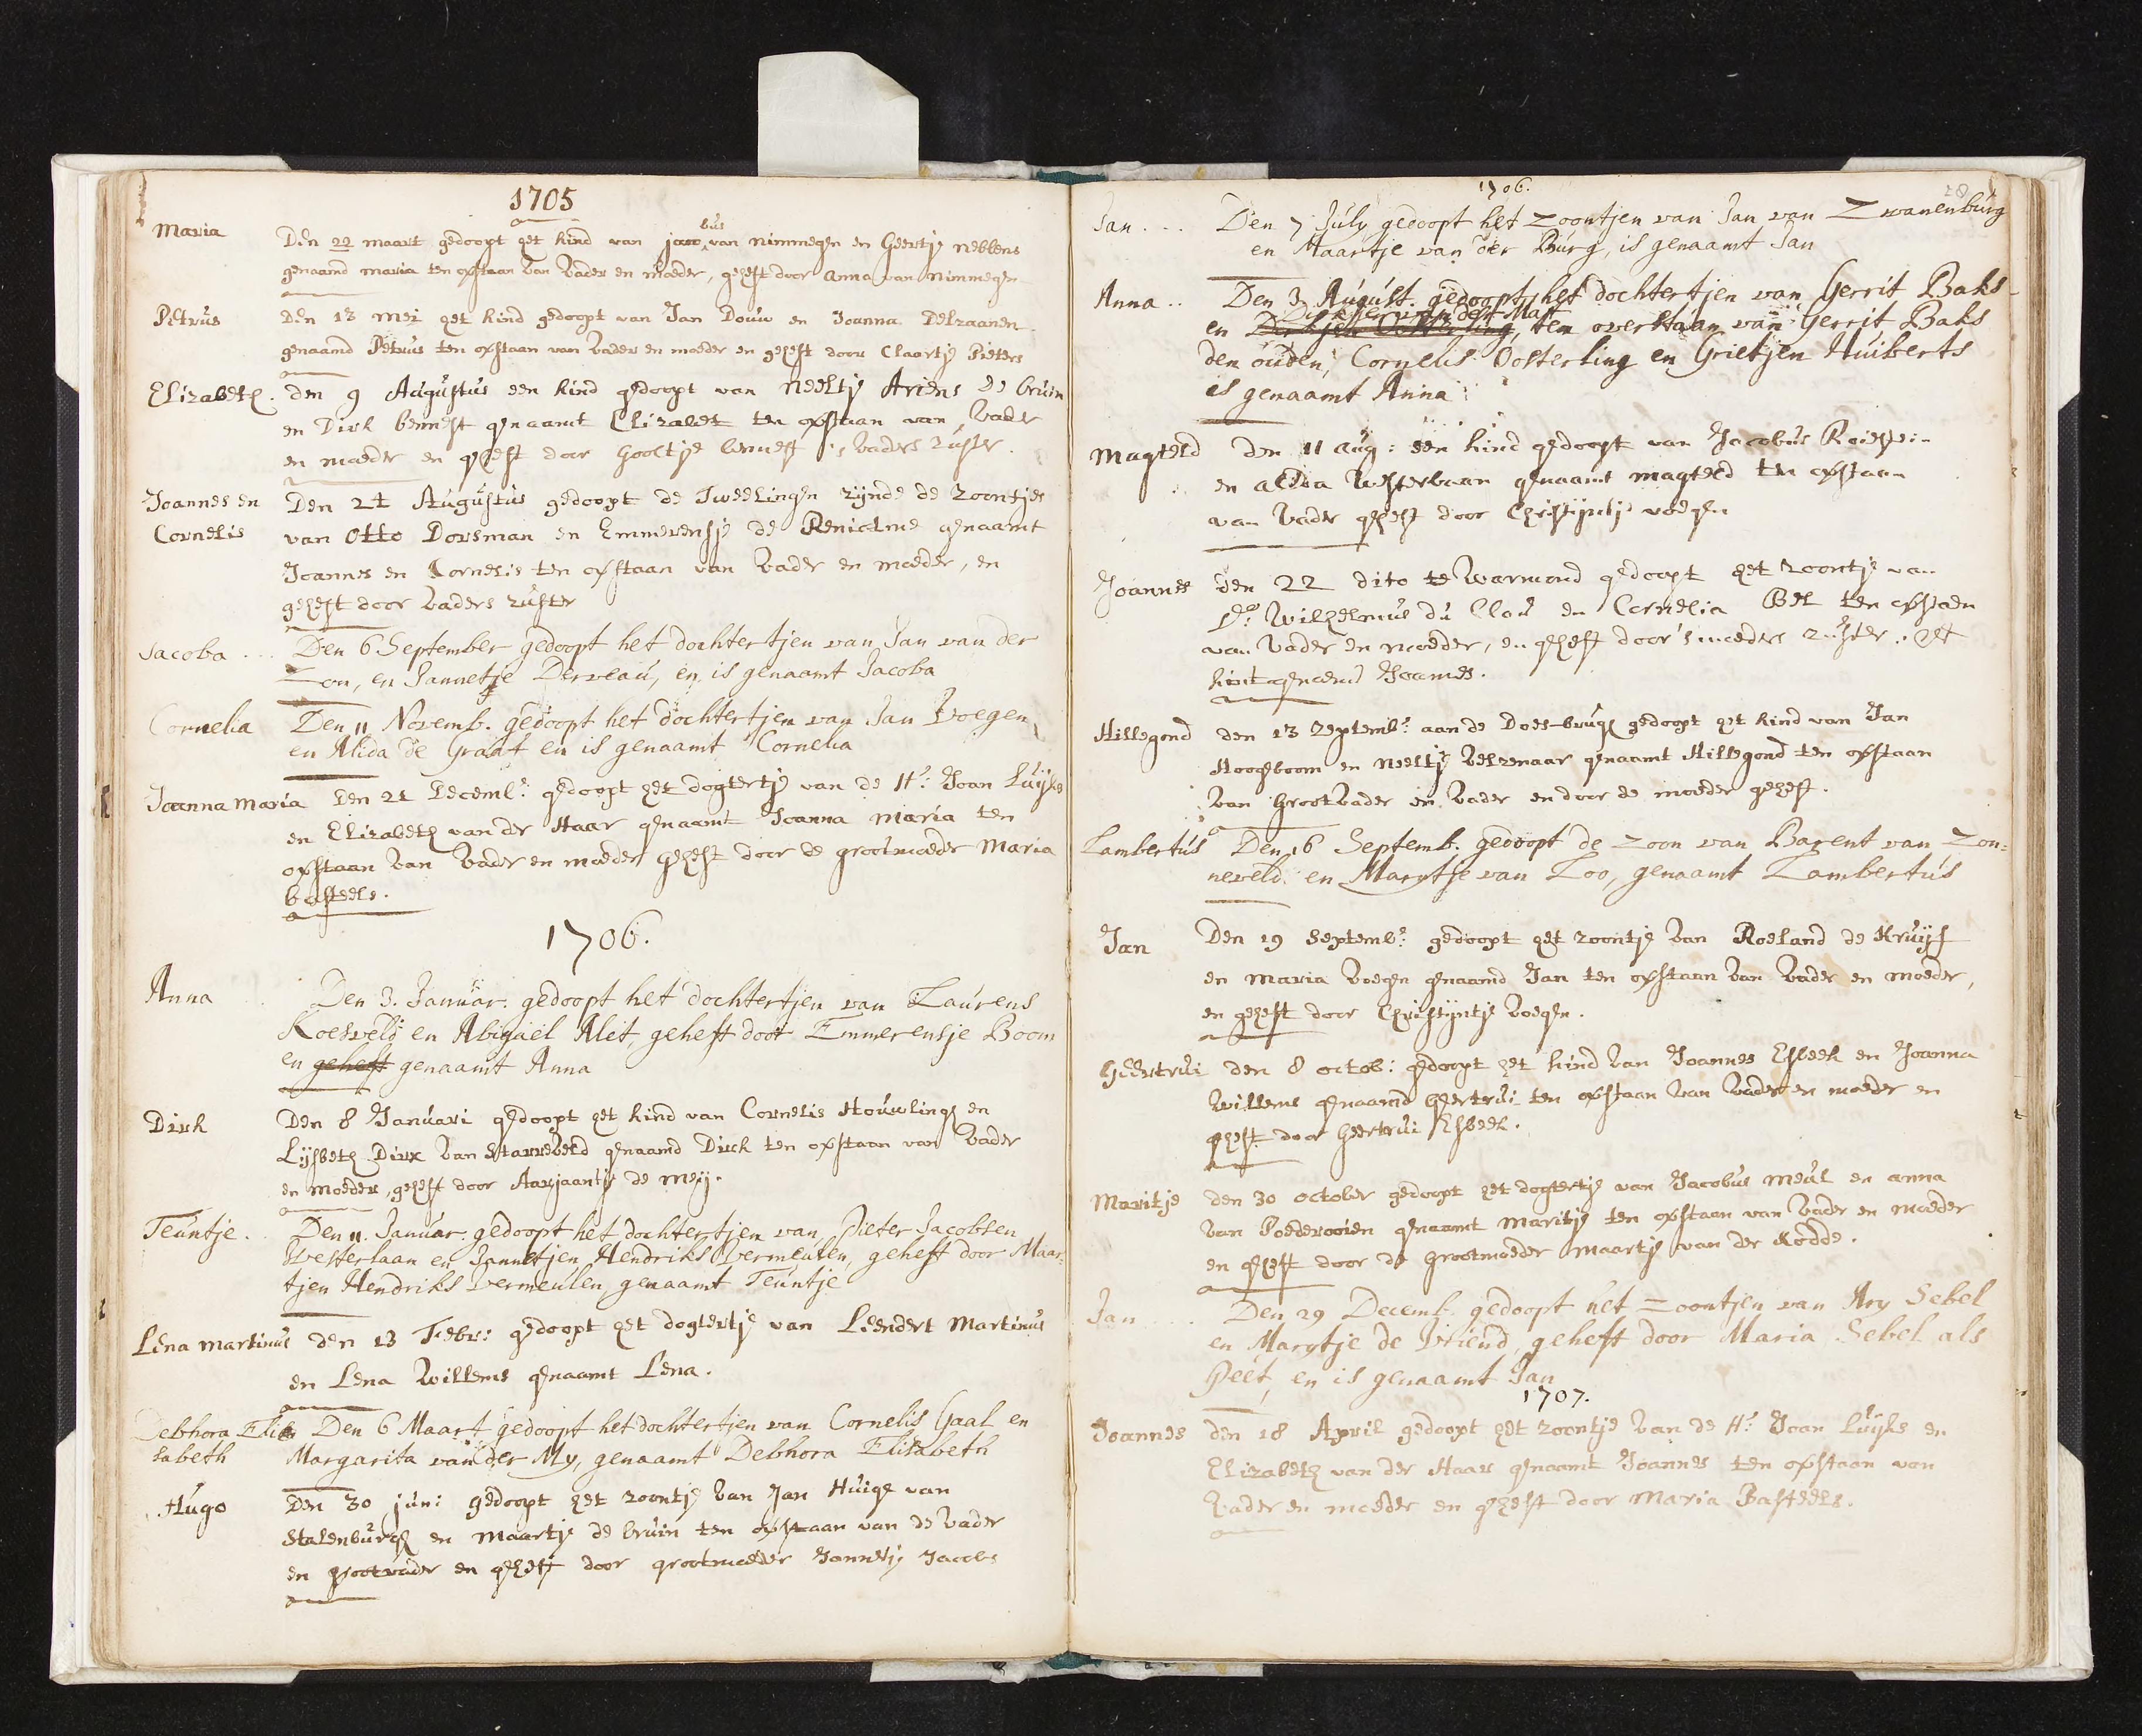 1705
Maria Den 22 maart gedoopt het kind van jacobus van Nimmegen en Geertje Nebbens
genaamd maria ten opstaan van vader en moeder, geheft door anna van Nimmegen
Petrus den 13 mei het kind gedoopt van Jan Douw en Joanna Delraanen
genaamd Petrus ten opstaan van vader en moeder en geheft door Claartje Pieters
Elizabeth. den 9 Augustus een kind gedoopt van Neeltje Ariens de bruin
en Dirk bennest genaamt Elizabet ten opstaan van vader
en moeder en geheft door Gooltje bennest 's vaders zuster.
Joannes en Den 24 Augustus gedoopt de Tweelingen zijnde de zoontjes
Cornelis van Otto Dorsman en Emmerensje de Renialme genaamt
Joannes en Cornelis ten opstaan van vader en moeder, en
geheft door vaders zuster
Jacoba ... Den 6 September gedoopt het dochtertjen van Jan van der
Zon, en Jannetje Derveau, en is genaamt Jacoba
Cornelia Den 11 Novemb. gedoopt het dochtertjen van Jan Voegen
en Alida de Graaf en is genaamt Cornelia
Joanna Maria den 21 Decemb: gedoopt het dogtertje van de Hr: Joan Luyks
en Elizabeth van der Haar genaamt Joanna Maria ten
opstaan van vader en moeder geheft door de grootmoeder Maria
basteels.
1706.
Anna Den 3. Januar. gedoopt het dochtertjen van Laurens
Koesveld en Abigaël Alet, geheft door Emmerensje Boom
en geheft genaamt Anna
Dirk Den 8 Januari gedoopt het kind van Cornelis Houwling en
Lijsbeth Dirx van Starreveld genaamd Dirck ten opstaan van vader
en moeder, geheft door Aarjaantje de Meij.
Teuntje. Den 11. Januar. gedoopt het dochtertjen van Pieter Jacobsen
Westerlaan en Jannetjen Hendriks Vermeulen, geheft door Maar-
tjen Hendriks Vermeulen genaamt Teuntje
Lena martinus den 13 Febr: gedoopt het dogtertje van Leendert Martinus
en Lena Willems genaamt Lena.
Debhora Eli- Den 6 Maart gedoopt het dochtertjen van Cornelis Gaal en
sabeth Margarita van der My, genaamt Debhora Elisabeth
Hugo Den 30 juni gedoopt het zoontje van Jan Huige van
Stalenburch en Maartje de bruin ten opstaan van de vader
en grootvader en geheft door grootmoeder Jannetje Jacobs
1706.
28
Jan ... Den 7 July gedoopt het zoontjen van Jan van Zwanenburg
en Maartje van der Burg, is genaamt Jan
Anna .. Den 3 August. gedoopt het dochtertjen van Gerrit Baks
van der Mast
en Oosterling, ten overstaan van Gerrit Baks
den ouden, Cornelis Oosterling en Grietjen Huiberts
is genaamt Anna
Magteld den 11 aug: een kind gedoopt van Jacobus
en alida Westerbaan genaamt magteld ten opstaan
van vader geheft door Christijntje voegen
Joannes den 22 dito te Warmond gedoopt het zoontje van
Ds: Wilhelmus du Clou en Cornelia Bel ten opstaan
van vader en moeder, en geheft door 's moeders zuster. het
kint genaemd Joannes.
Hillegond den 13 Septemb: aan de Does-brug gedoopt het kind van Jan
Hoogeboom en Neeltje Velzenaar genaamt Hillegond ten opstaan
van Grootvader en vader en door de moeder geheft.
Lambertus Den 16 Septemb. gedoopt de zoon van Barent van Zon-
neveld en Marytje van Loo, genaamt Lambertus
Jan Den 19 Septemb: gedoopt het zoontje van Roeland de Kruijf
en Maria voegen genaamd Jan ten opstaan van vader en moeder,
en geheft door Christijntje voegen.
Geertrui den 8 octob: gedoopt het kind van Joannes Esbeek en Joanna
Willems genaamd Geertrui ten opstaan van vader en moeder en
geheft door Geertrui Esbeek.
Maritje den 30 october gedoopt het dogtertje van Jacobus Meul en anna
van Poederooien genaamt Maritje ten opstaan van vader en moeder
en geheft door de Grootmoeder Maartje van der Kodde.
Jan ... Den 29 Decemb. gedoopt het zoontjen van Ary Sebel
en Marytje de Vriend, geheft door Maria Sebel als
Peet, en is genaamt Jan
1707.
Joannes den 18 April gedoopt het zoontje van de Hr: Joan Luyks en
Elizabeth van der Haar genaamt Joannes ten opstaan van
vader en moeder en geheft door Maria Basteels.